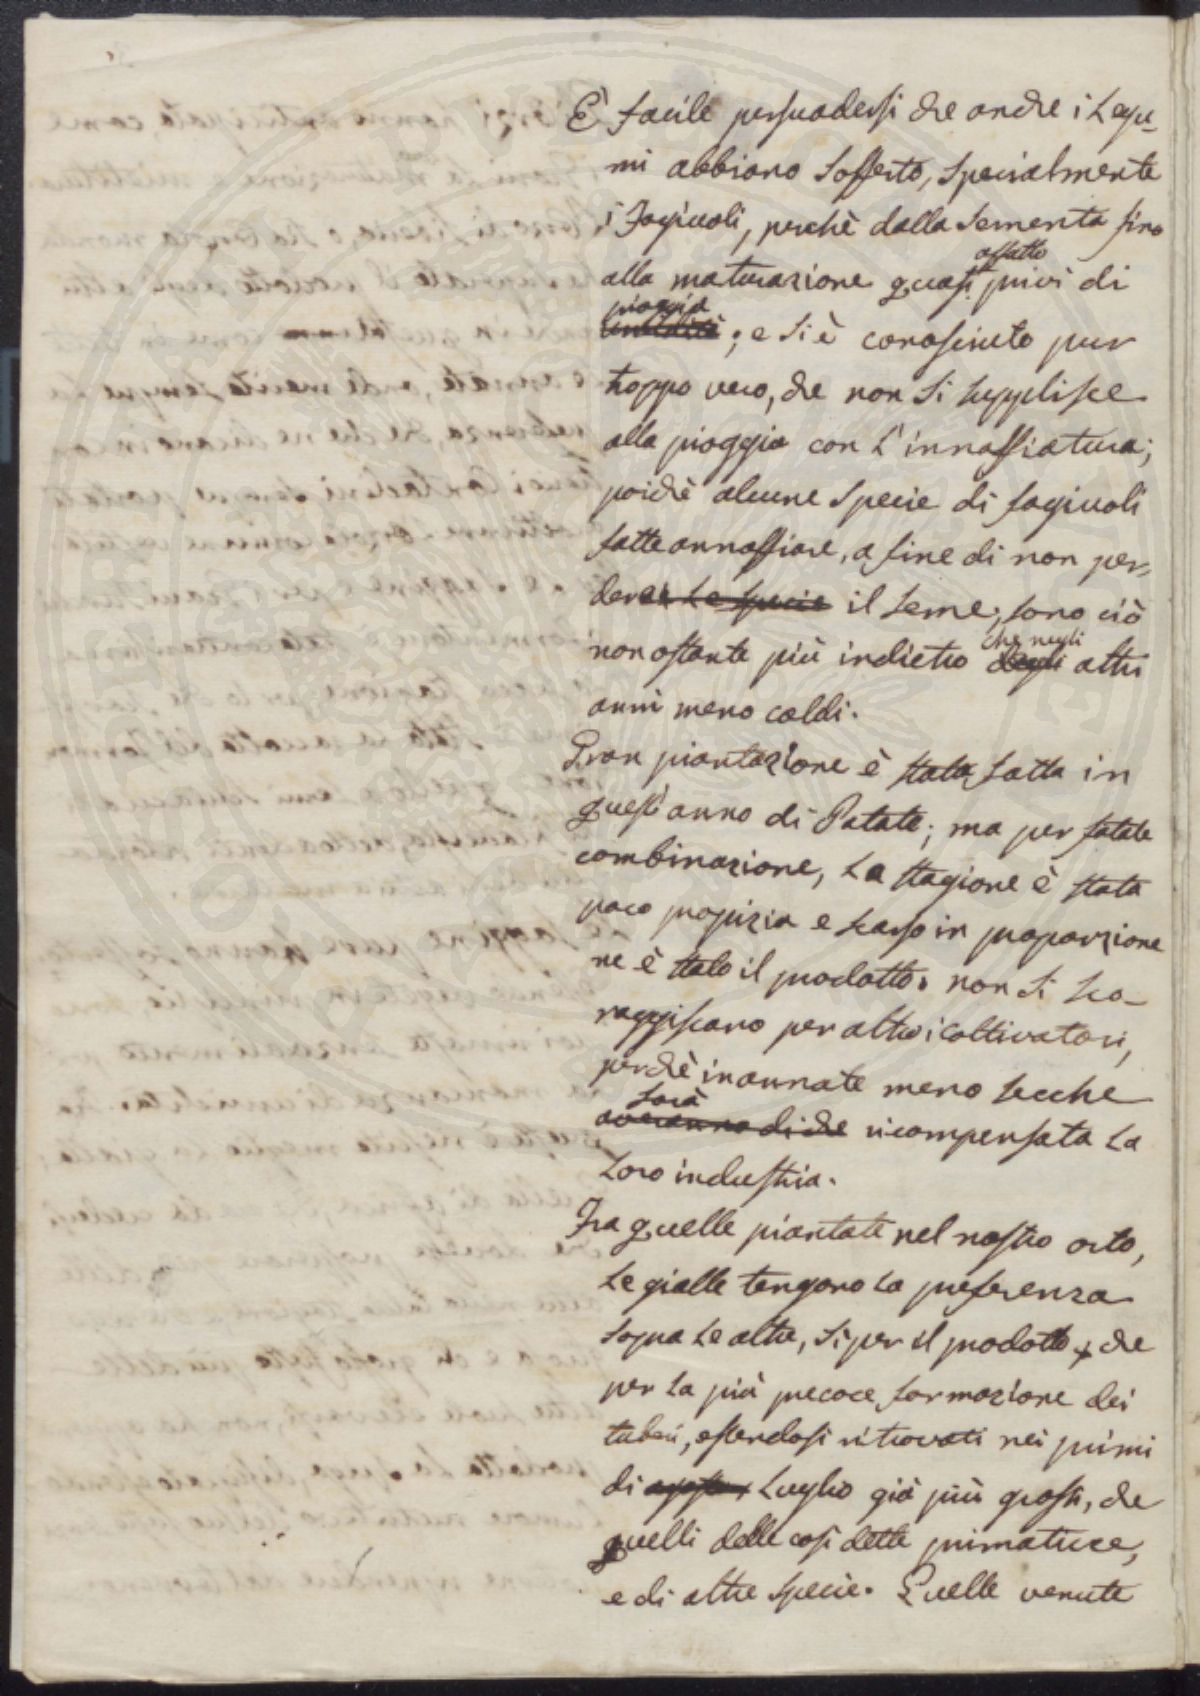 È facile persuadersi che anche i Legu-
mi abbiano sofferto, specialmente
i Fagiuoli, perchè dalla sementa fino
affatto
alla maturazione quasi privi di
pioggia
umidità; e si è conosciuto pur
troppo vero, che non si supplisce
alla pioggia con l'innaffiatura;
poichè alcune specie di fagiuoli
fatte annaffiare, a fine di non per-
derne le specie il seme, sono ciò
che negli
non ostante più indietro degli altri
anni meno caldi.
Gran piantazione è stata fatta in
quest'anno di Patate; ma per fatale
combinazione, la stagione è stata
poco propizia e scarso in proporzione
ne è stato il prodotto. non si sco-
raggiscano per altro i coltivatori,
perchè in annate meno secche
sarà
averanno di che ricompensata la
loro industria.
Fra quelle piantate nel nostro orto,
le gialle tengono la preferenza
sopra le altre, sì per il prodotto, che
per la più precoce formazione dei
tuberi, essendosi ritrovati nei primi
di agosto Luglio già più grossi, che
quelli delle così dette primature,
e di altre specie. Quelle venute